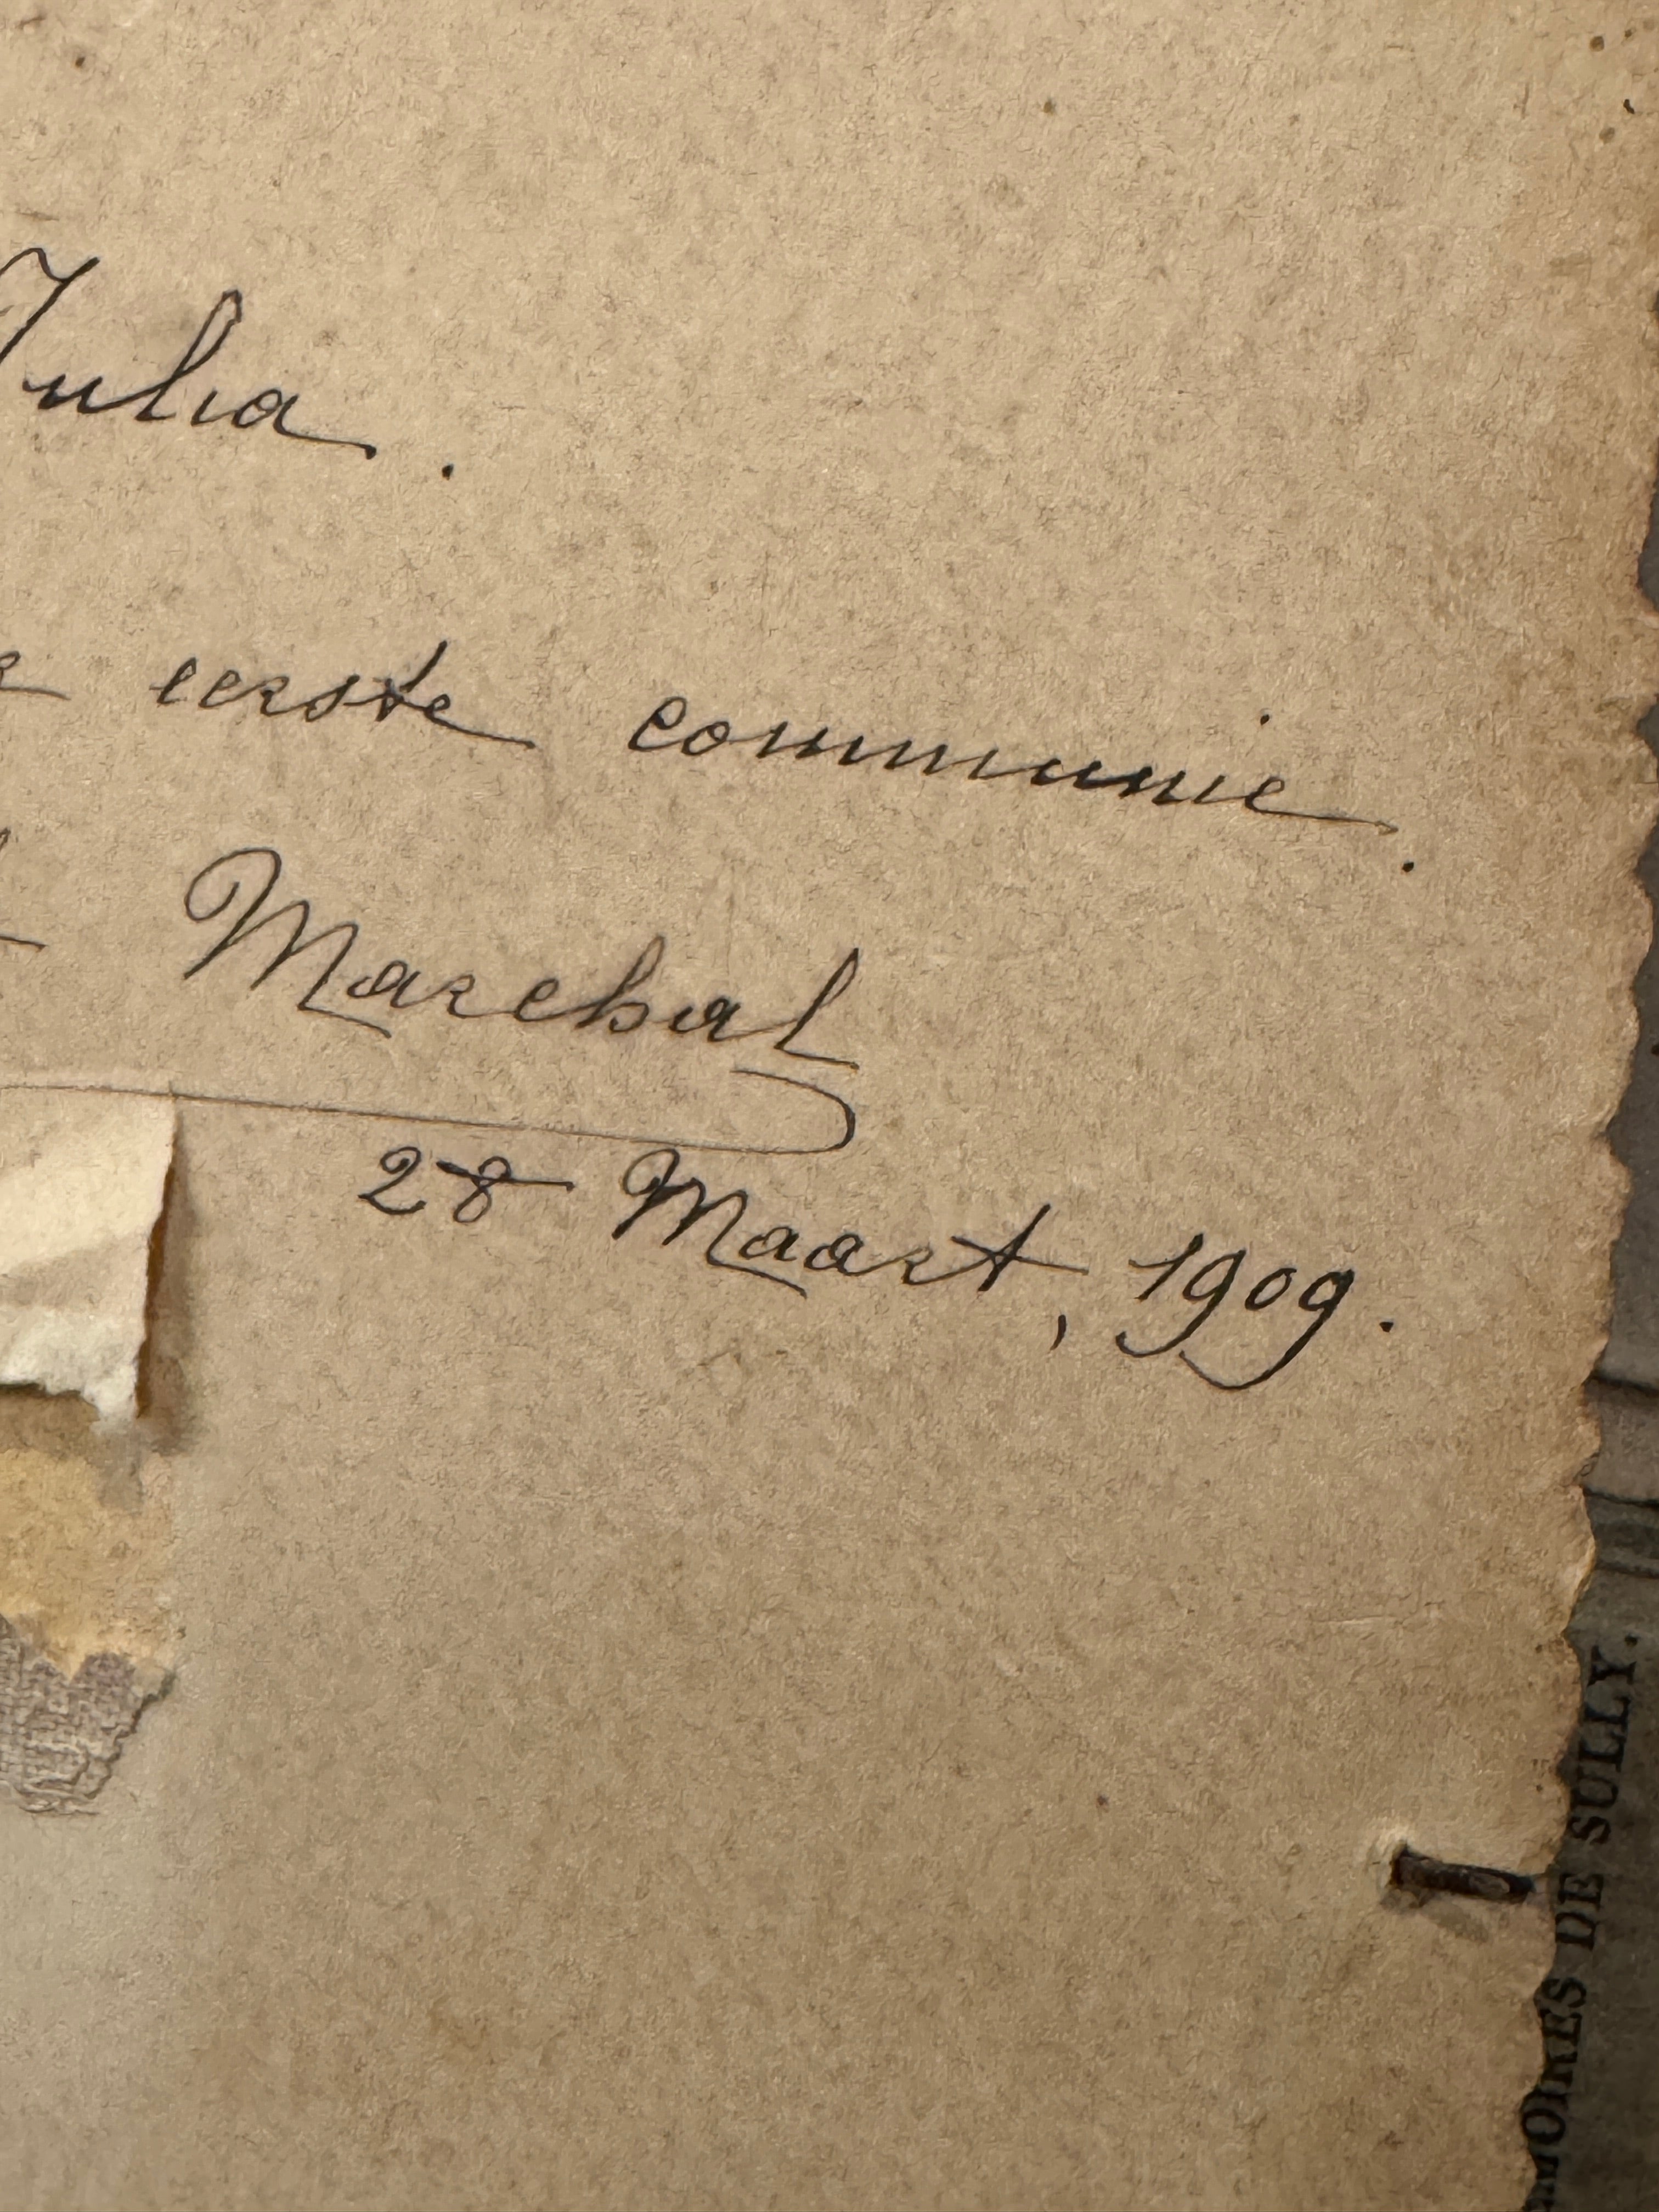 Julia.
eerste communie.
Marchal
28 Maart, 1909.
MOIRES DE SULLY.